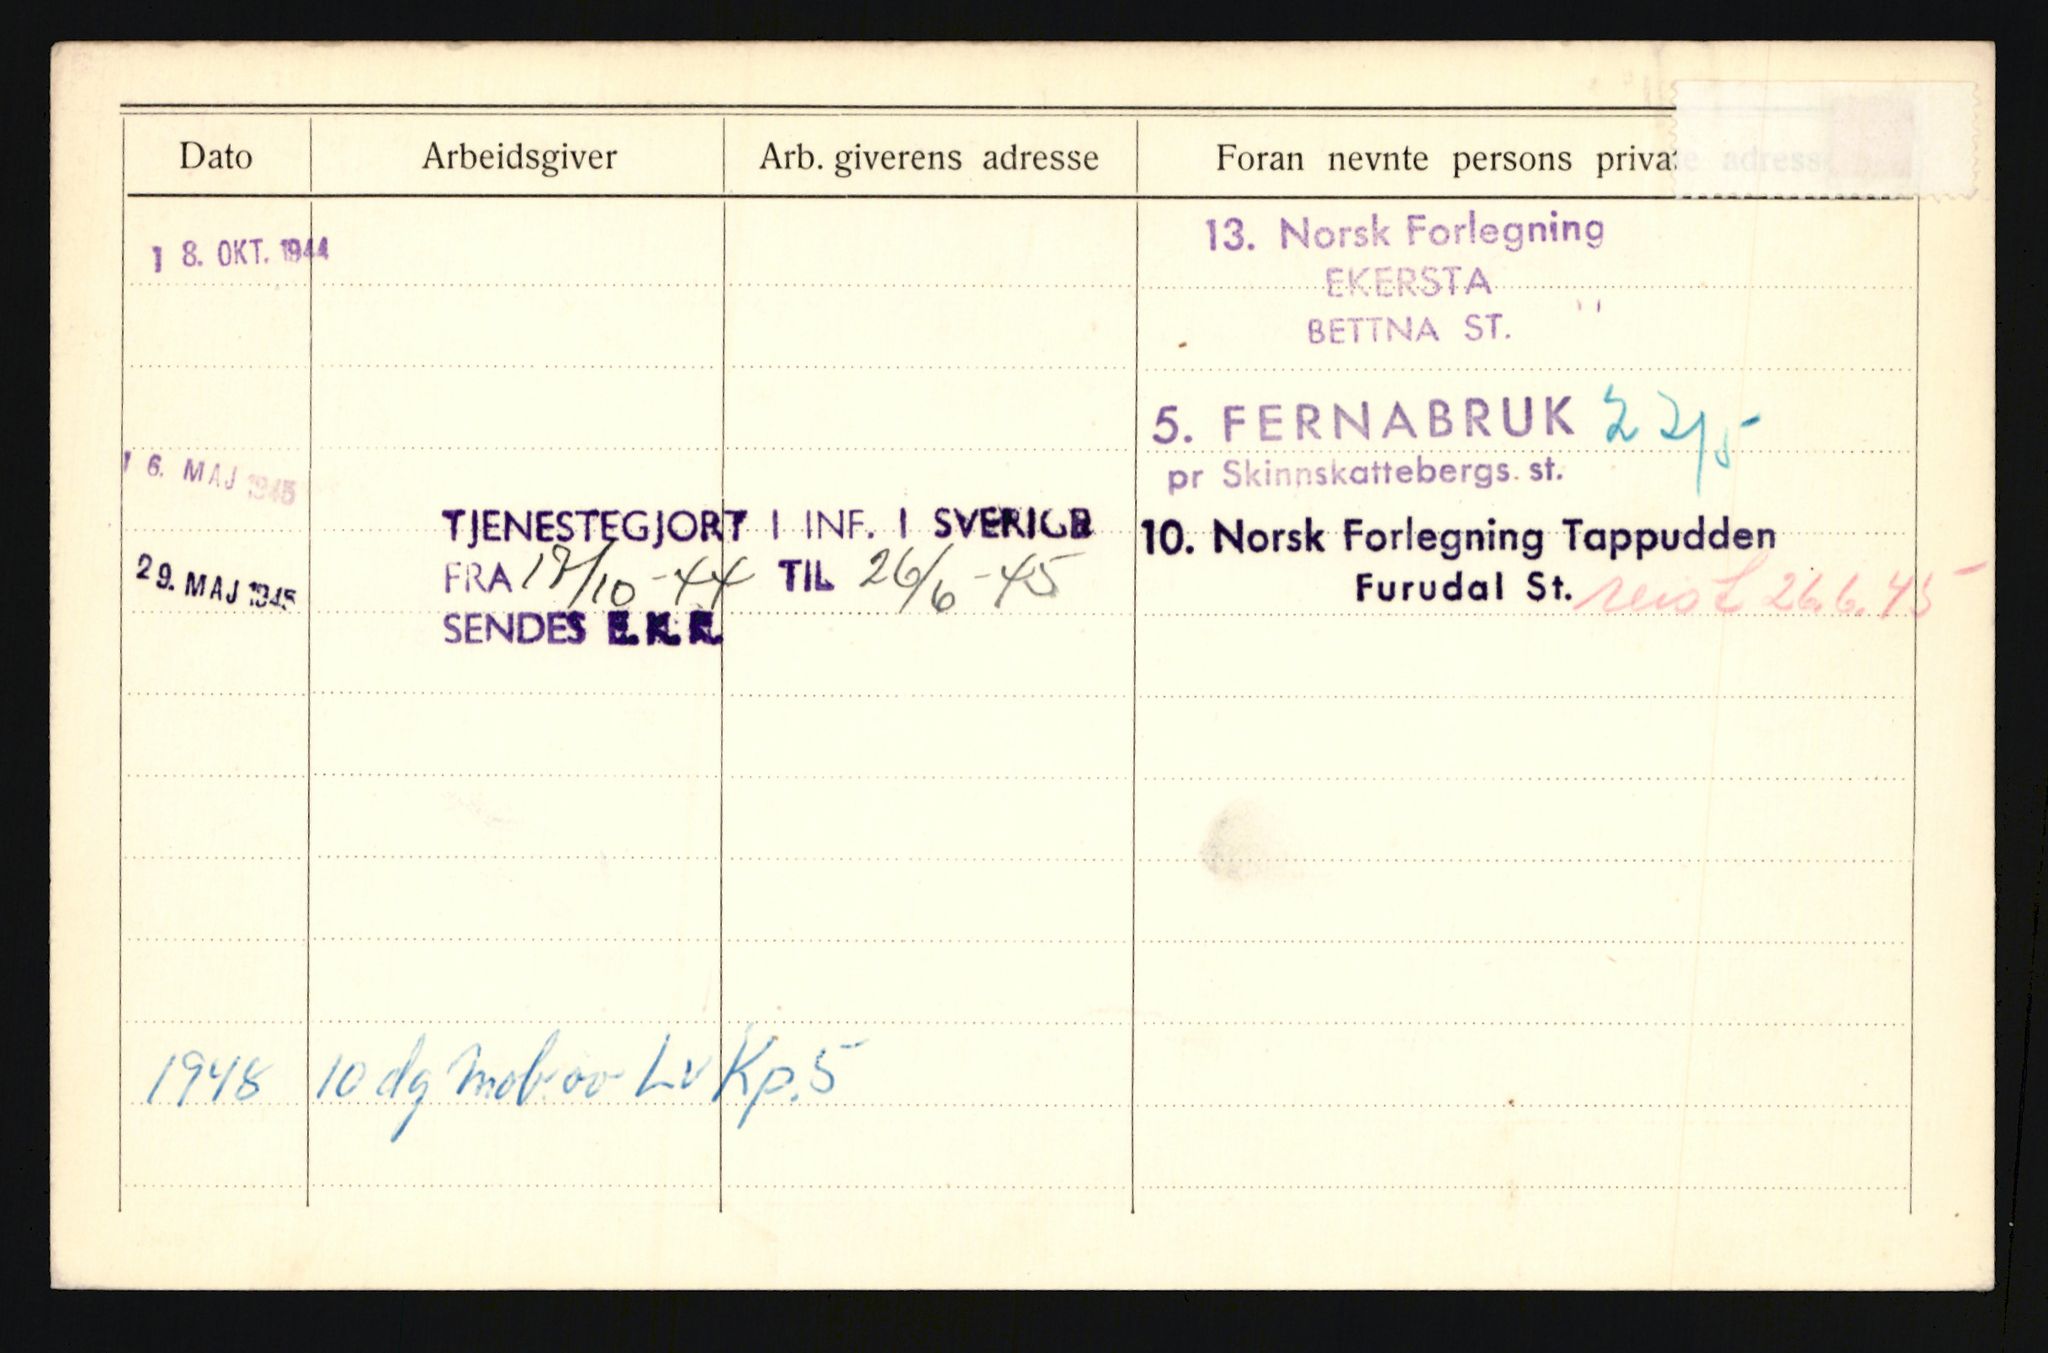 Dato Arbeidsgiver Arb. giverens adresse Foran nevnte persons private adresse
18. OKT. 1944 13. Norsk Forlegning
EKERSTA
BETTNA ST.
5. FERNABRUK 22/5
16. MAJ 1945 pr Skinnskattebergs. st.
TJENESTEGJORT I INF. I SVERIGE 10. Norsk Forlegning Tappudden
29. MAJ 1945 FRA /10-44 TIL 26/6-45 Furudal St. reist 26.6.45
SENDES
1948 10 dg mob.øv Lv Kp. 5